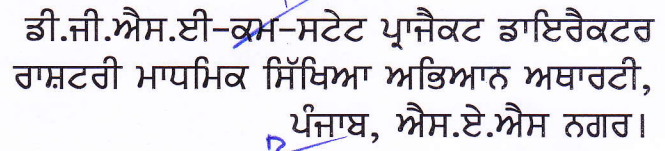 ਡੀ.ਜੀ.ਐਸ.ਈ-ਕਮ-ਸਟੇਟ ਪ੍ਰਾਜੈਕਟ ਡਾਇਰੈਕਟਰ
ਰਾਸ਼ਟਰੀ ਮਾਧਮਿਕ ਸਿੱਖਿਆ ਅਭਿਆਨ ਅਥਾਰਟੀ,
ਪੰਜਾਬ, ਐਸ.ਏ.ਐਸ ਨਗਰ।